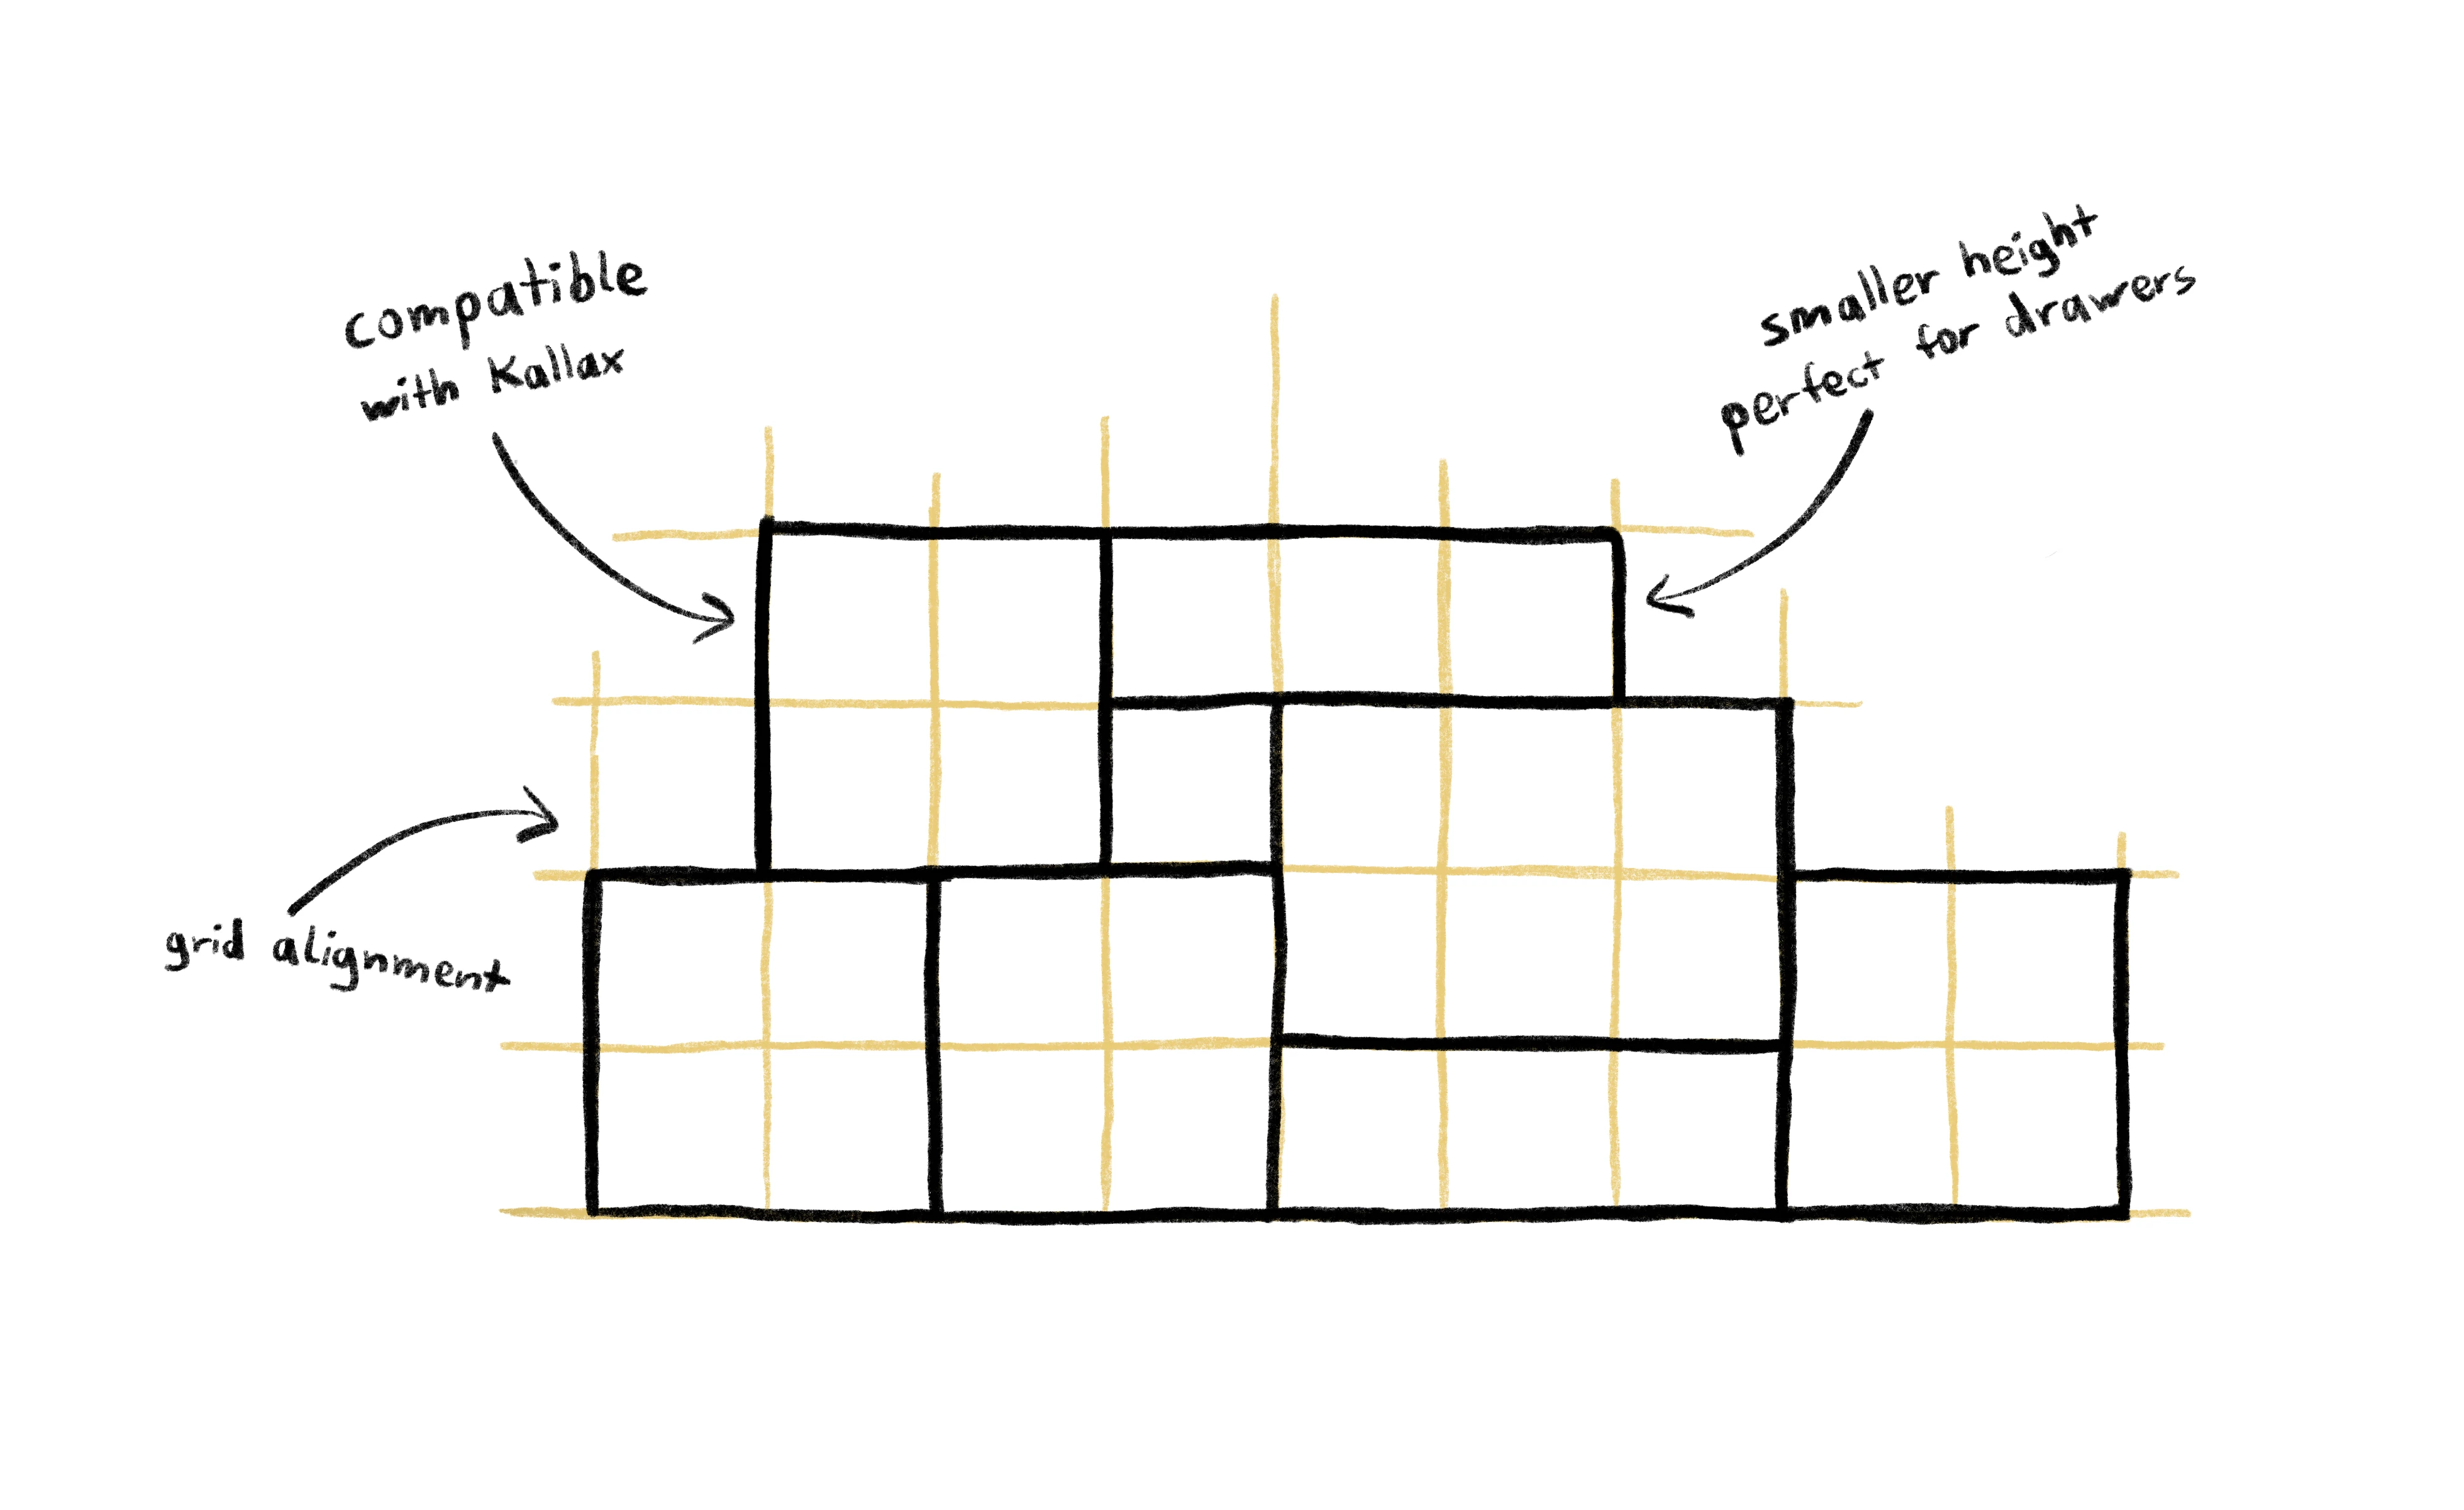 compatible
with Kallax
smaller height
perfect for drawers
grid alignment